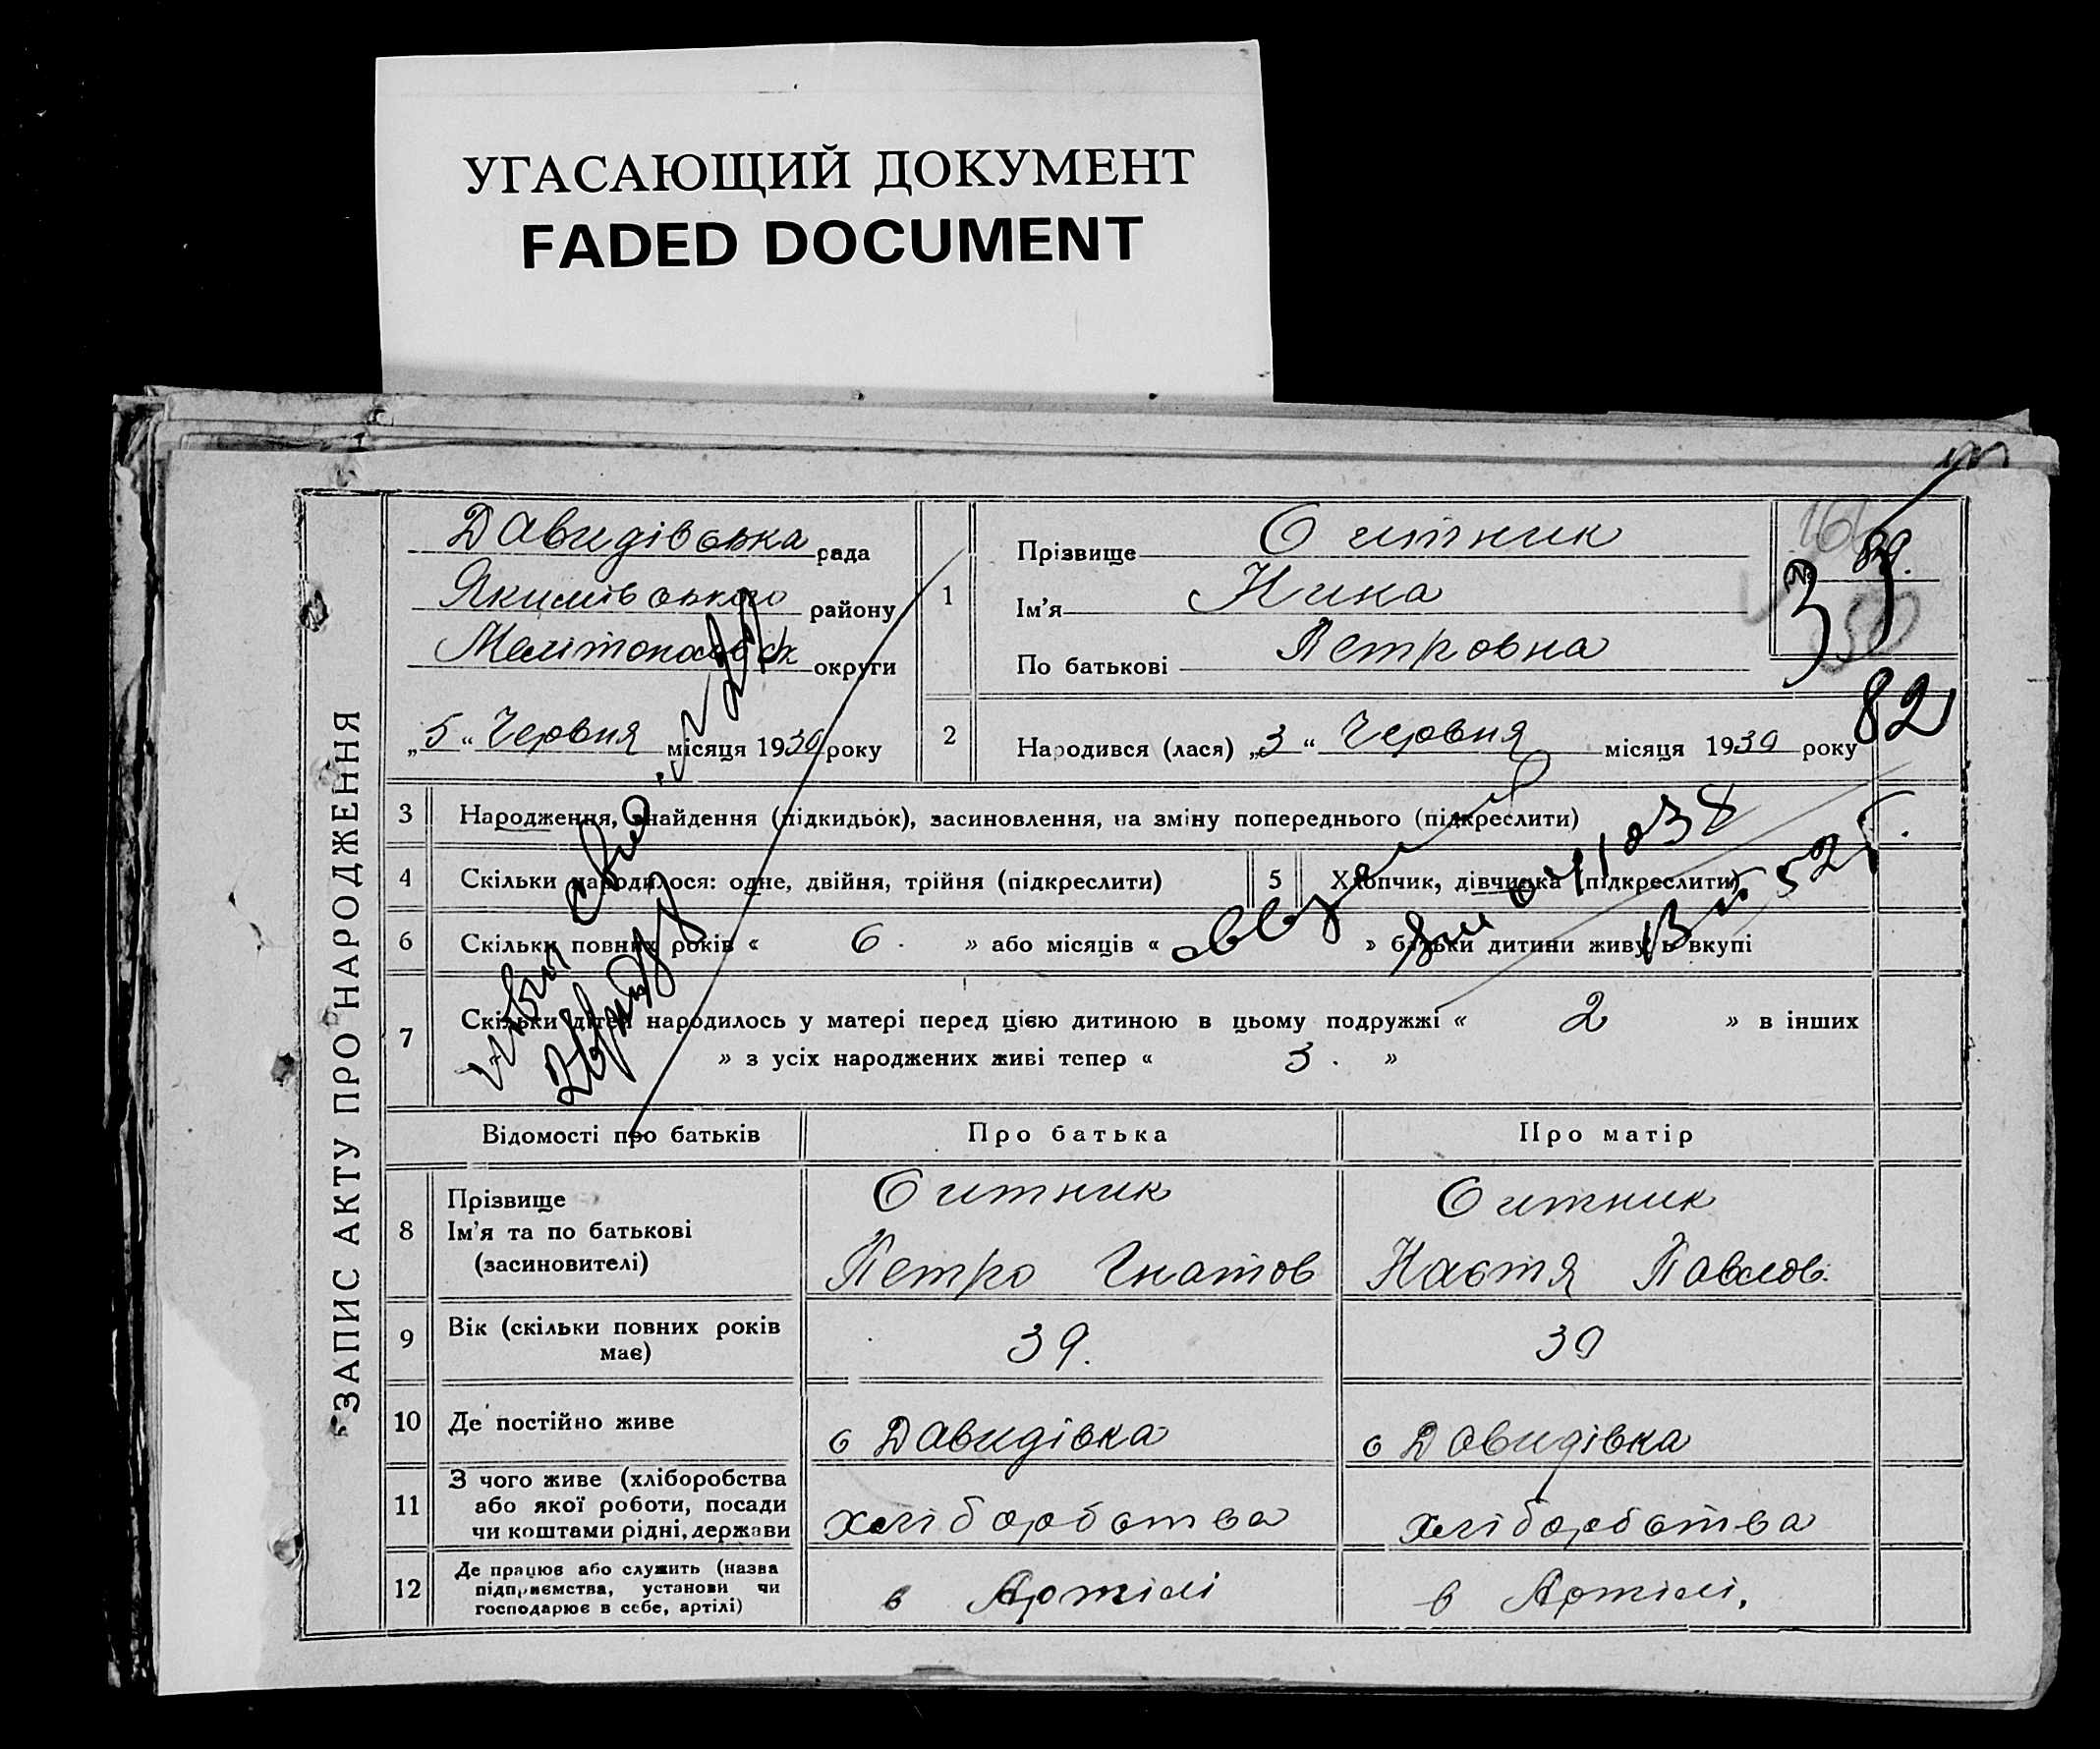 УГАСАЮЩИЙ ДОКУМЕНТ
FADED DOCUMENT
ЗАПИС АКТУ ПРО НАРОДЖЕННЯ
Давидівська рада
Якимівського району
Мелітопольськ округи
„5“ Червня місяця 1930 року
1
Прізвище Ситник
Ім'я Нина
По батькові Петровна
89.
82
2 Народився (лася) „3“ Червня місяця 1930 року
3 Народження, знайдення (підкидьок), засиновлення, на зміну попереднього (підкреслити)
4 Скільки народилося: одне, двійня, трійня (підкреслити)
5 Хлопчик, дівчинка (підкреслити)
6 Скільки повних років « 6. » або місяців « » батьки дитини живуть вкупі
7 Скільки дітей народилось у матері перед цією дитиною в цьому подружжі « 2 » в інших
» з усіх народжених живі тепер « 3. »
Відомості про батьків Про батька Про матір
8 Прізвище
Ім'я та по батькові
(засновителі)
Ситник
Петро Гнатов
Ситник
Настя Павлов.
9 Вік (скільки повних років
має)
39.
30
10 Де постійно живе
с Давидівка
с Давидівка
11 З чого живе (хліборобства
або якої роботи, посади
чи коштами рідні, держави
хліборобства
хліборобства
12 Де працює або служить (назва
підприємства, установи чи
господарює в себе, артілі)
в Артілі
в Артілі,